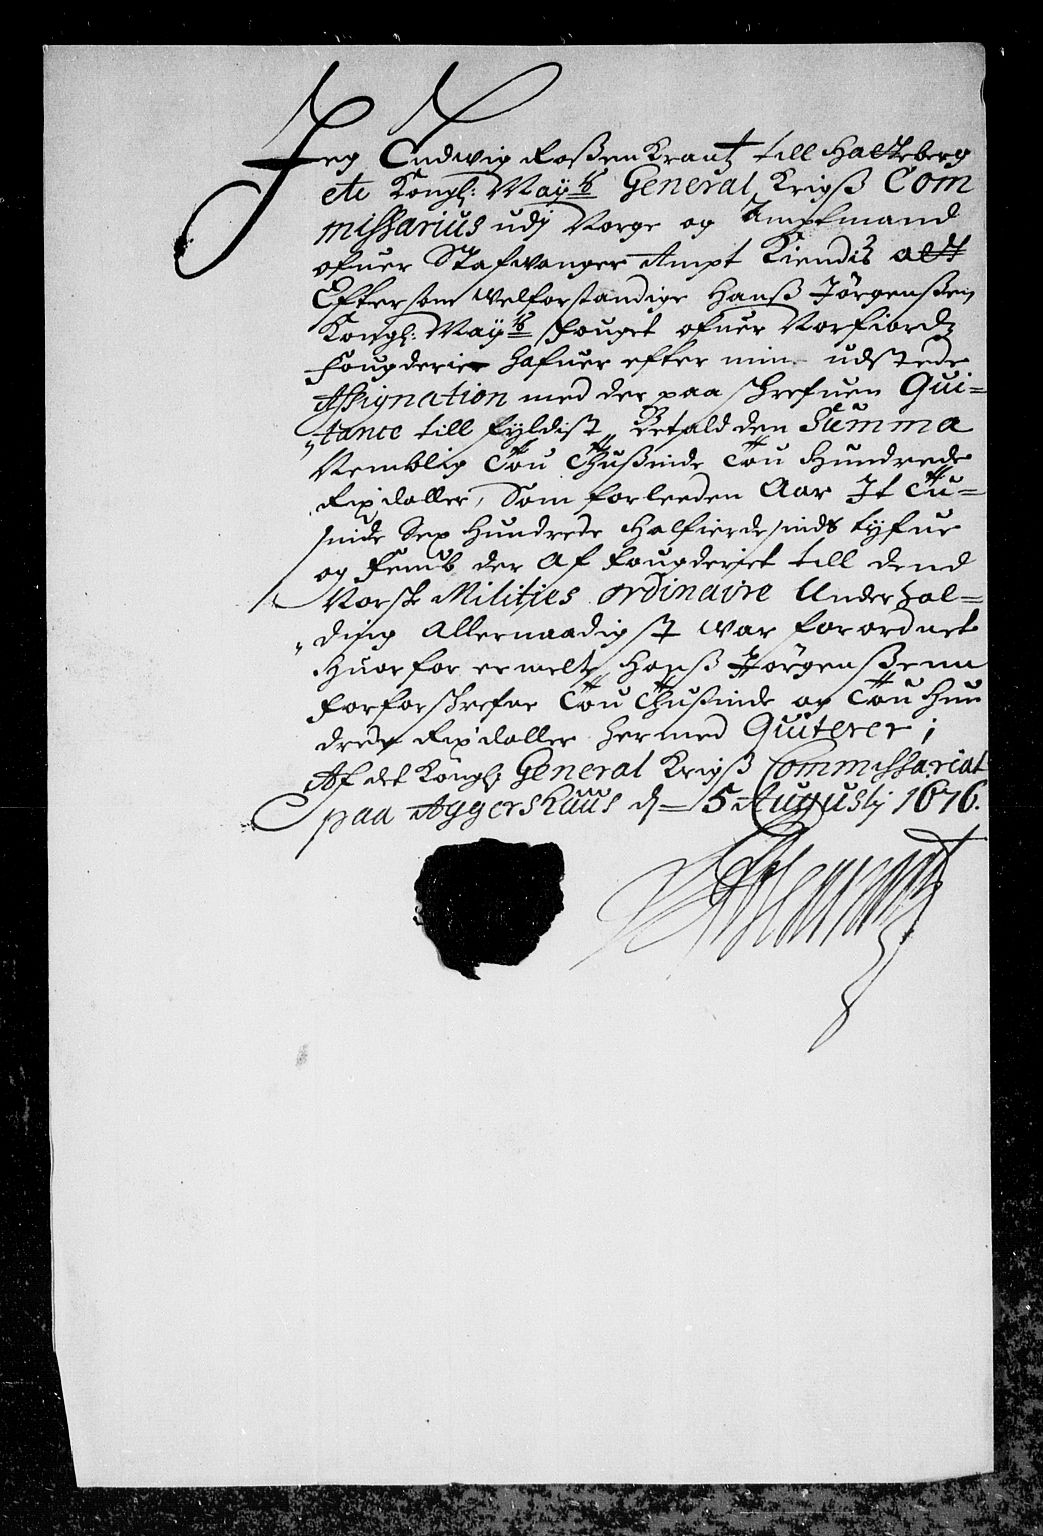 Jeg Ludwig Roßenkrantz till Hatteberg
etc Kongl: May.ts General Krigß Com
missarius udj Norge og Amptmand
ofuer Stafwanger Ampt Kiendis att
Eftersom Welforstandige Hanß Jørgenßen
Kongl: May.ts fouget ofuer Norfiordz
fougderie hafuer efter min udstede
Assignation med der paa skrefuen Qui-
tance till fyldist Betald den Summa
Nemblig Tou Thußinde Tou Hundrede
Rixdaller, Som forleeden Aar It Tu-
sinde Sex Hundrede Halfierdesinds tyfue
og Femb der Af fougderiet till dend
Norske Milities ordinaire Underhol-
ding Allernaadigst war forordnet
Huorfor ermelte Hanß Jørgenßenn
forforskrefne Tou Thußinde og Tou Hun
drede Rixdaller hermed Quiterer;
Af det Kongl: General Krigß Commissariat
paa Aggershuus d. 5 Augustj 1676.